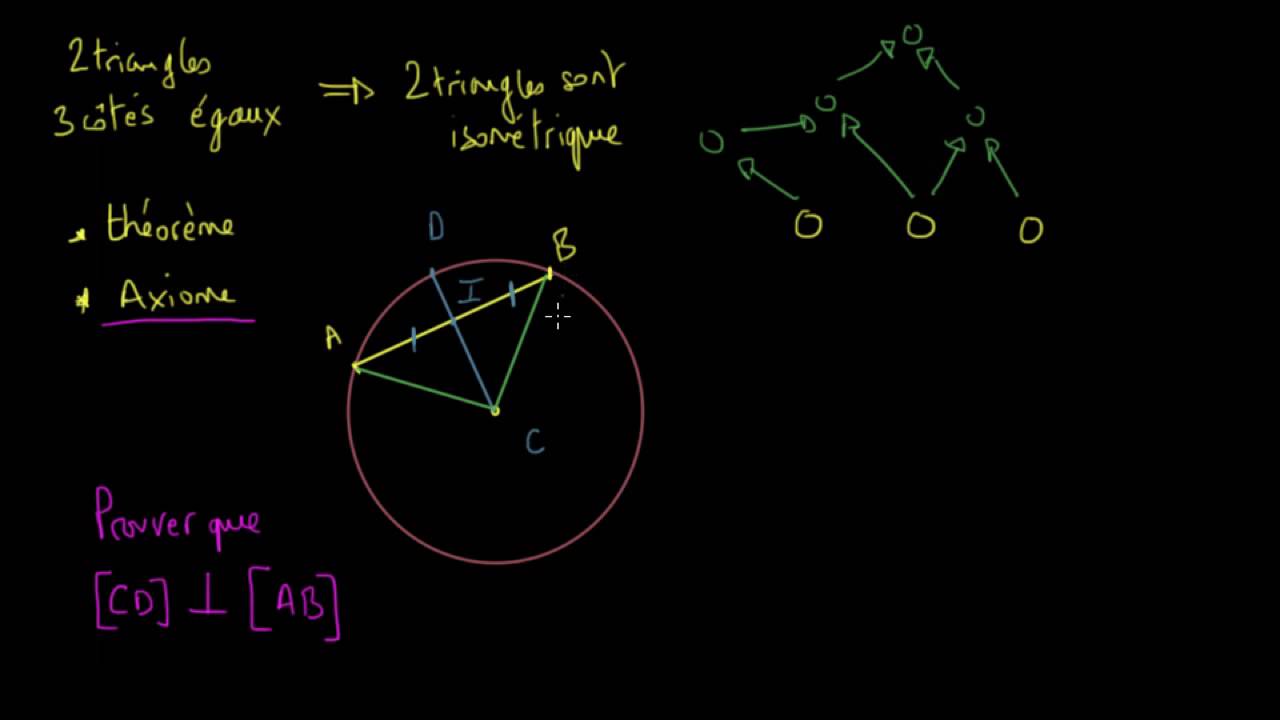 2 triangles
3 côtés égaux
⇒
2 triangles sont
isométrique
* théorème
* Axiome
D
B
I
A
C
Prouver que
[CD] ⊥ [AB]